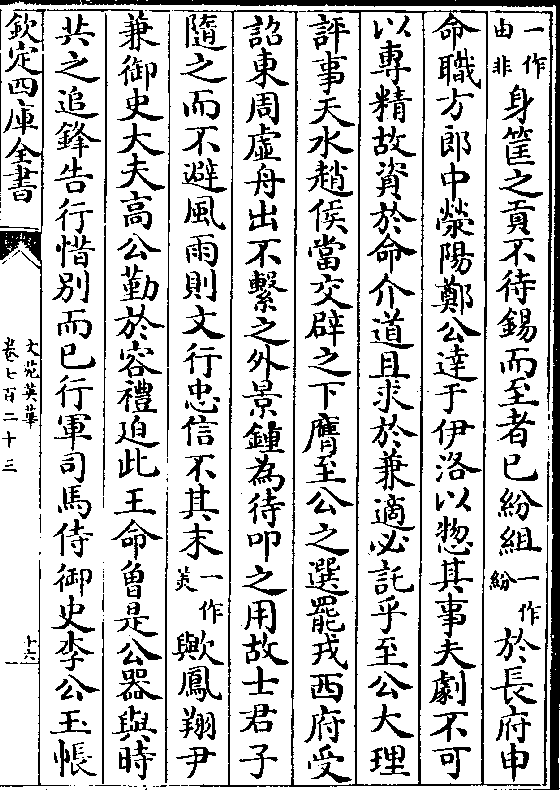 一作由非身筐之貢不待錫而至者已紛組一作紛於長府申
命職方郎中滎陽鄭公達于伊洛以惣其事夫劇不可
以專精故資於命介道且求於兼適必託乎至公大理
評事天水趙侯當交辟之下膺至公之選罷戎西府受
詔東周虛舟出不繫之外景鍾為待叩之用故士君子
隨之而不避風雨則文行忠信不其末一作美歟鳳翔尹
兼御史大夫高公勤於容禮迫此王命曾是公器與時
共之追鋒告行惜別而已行軍司馬侍御史李公玉帳
欽定四庫全書
文苑英華
卷七百二十三
十六